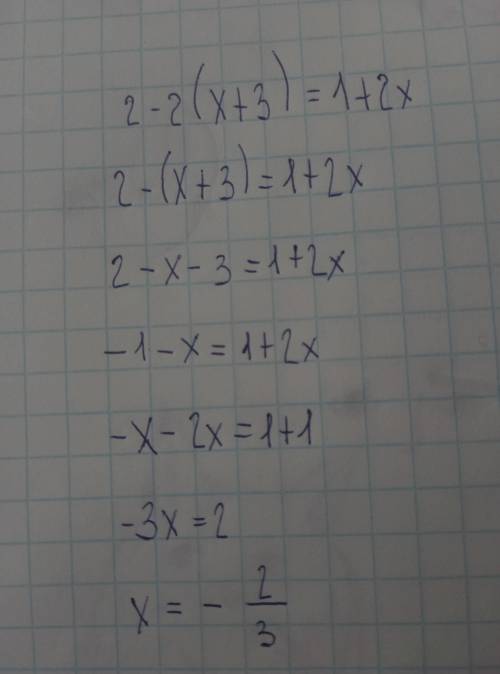 2-2(x+3)=1+2x
2-(x+3)=1+2x
2-x-3=1+2x
-1-x=1+2x
-x-2x=1+1
-3x=2
x=-2/3